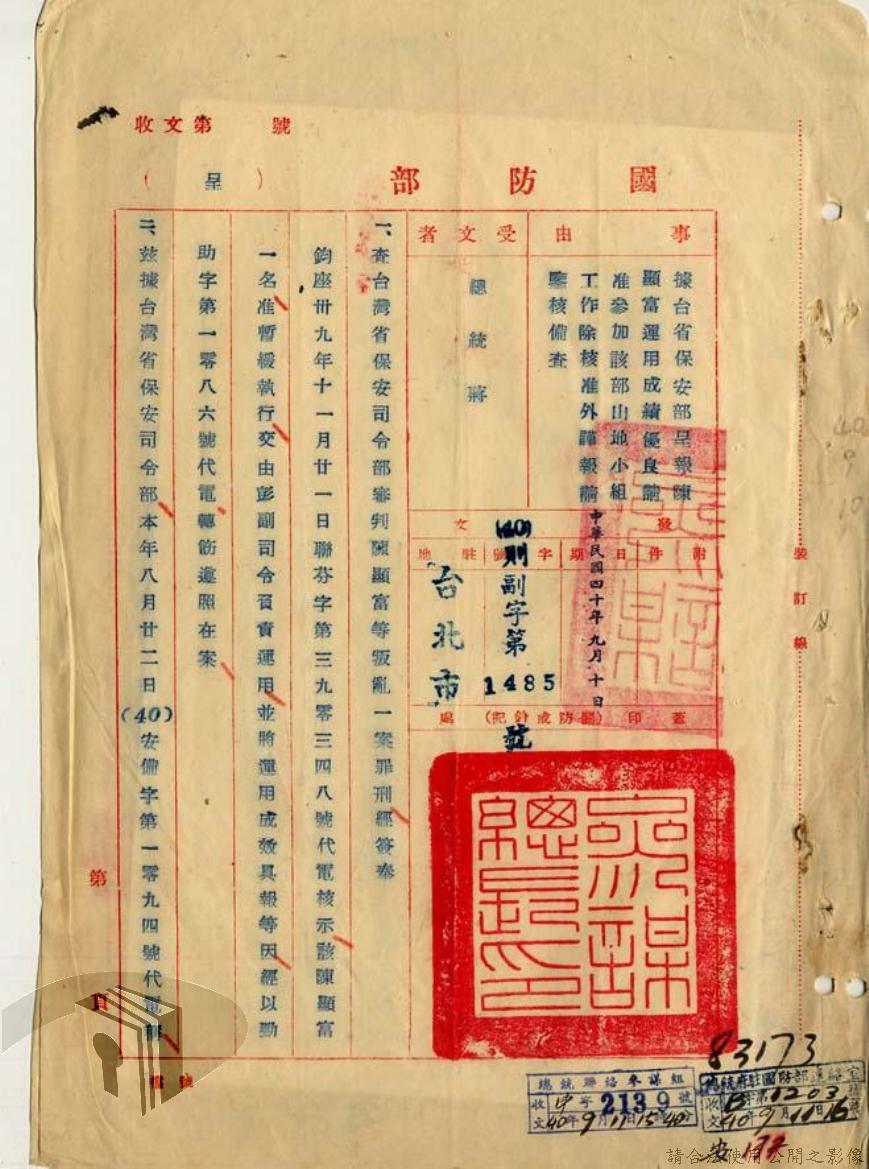 收文第　號
國防部（呈）
事由
據台省保安部呈報陳
顯富運用成績優良請
准參加該部山地小組
工作除核准外謹報請
鑒核備查
受文者
總統蔣
發文
附件
日期
中華民國四十年九月十日
字號
(40)則副字第1485號
駐地
台北市
蓋印(關防或鈐記)處
參謀總長之印
一、查台灣省保安司令部審判陳顯富等叛亂一案罪刑經簽奉
鈞座卅九年十一月廿一日聯芬字第三九零三四八號代電核示該陳顯富
一名准暫緩執行交由彭副司令負責運用並將運用成效具報等因經以勁
助字第一零八六號代電轉飭遵照在案
二、茲據台灣省保安司令部本年八月廿二日(40)安備字第一零九四號代電稱
第　頁
裝訂線
83173
總統聯絡參謀組
收文
字2139號
40年9月11日15時40分
總統府駐國防部連絡室
收文
字第1203
40年9月11日16
172
請合法使用公開之影像